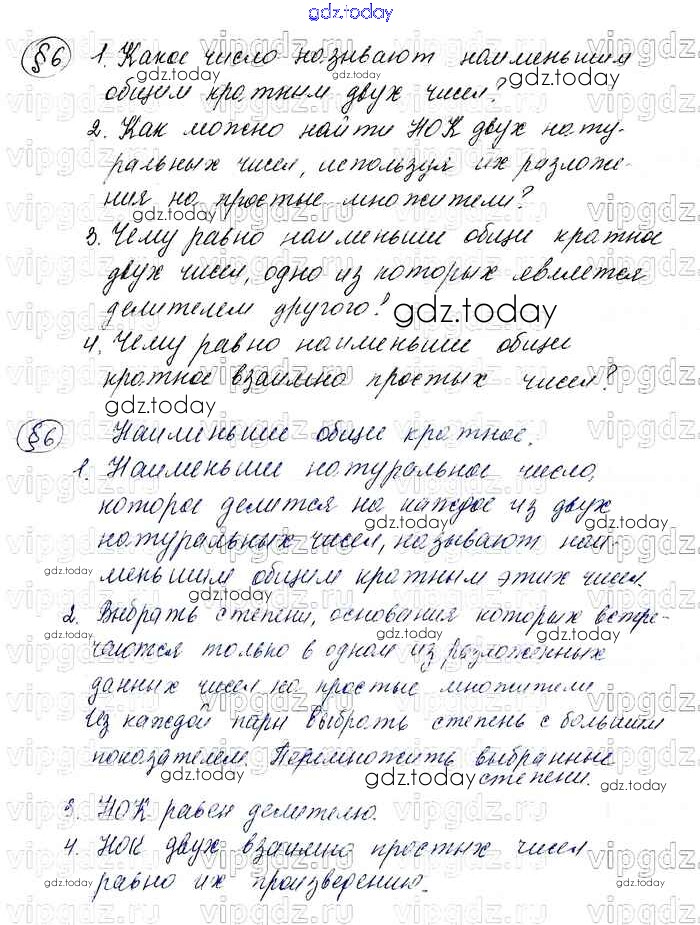 gdz.today
§6 1. Какое число называют наименьшим
общим кратным двух чисел?
2. Как можно найти НОК двух нату-
ральных чисел, используя их разложе-
ния на простые множители?
3. Чему равно наименьшее общее кратное
двух чисел, одно из которых является
делителем другого?
4. Чему равно наименьшее общее
кратное взаимно простых чисел?
§6 Наименьшее общее кратное.
1. Наименьшее натуральное число,
которое делится на каждое из двух
натуральных чисел, называют наи-
меньшим общим кратным этих чисел.
2. Выбрать степени, основания которых встре-
чаются только в одном из разложенных
данных чисел на простые множители
Из каждой пары выбрать степень с большим
показателем. Перемножить выбранные
степени.
3. НОК равен делителю.
4. НОК двух взаимно простых чисел
равно их произведению.